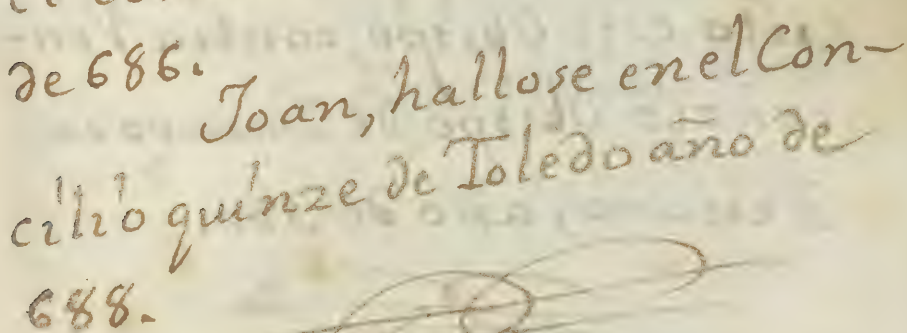 de 686.
Joan, hallose enel Con-
cilio quinze de Toledo año de
688.